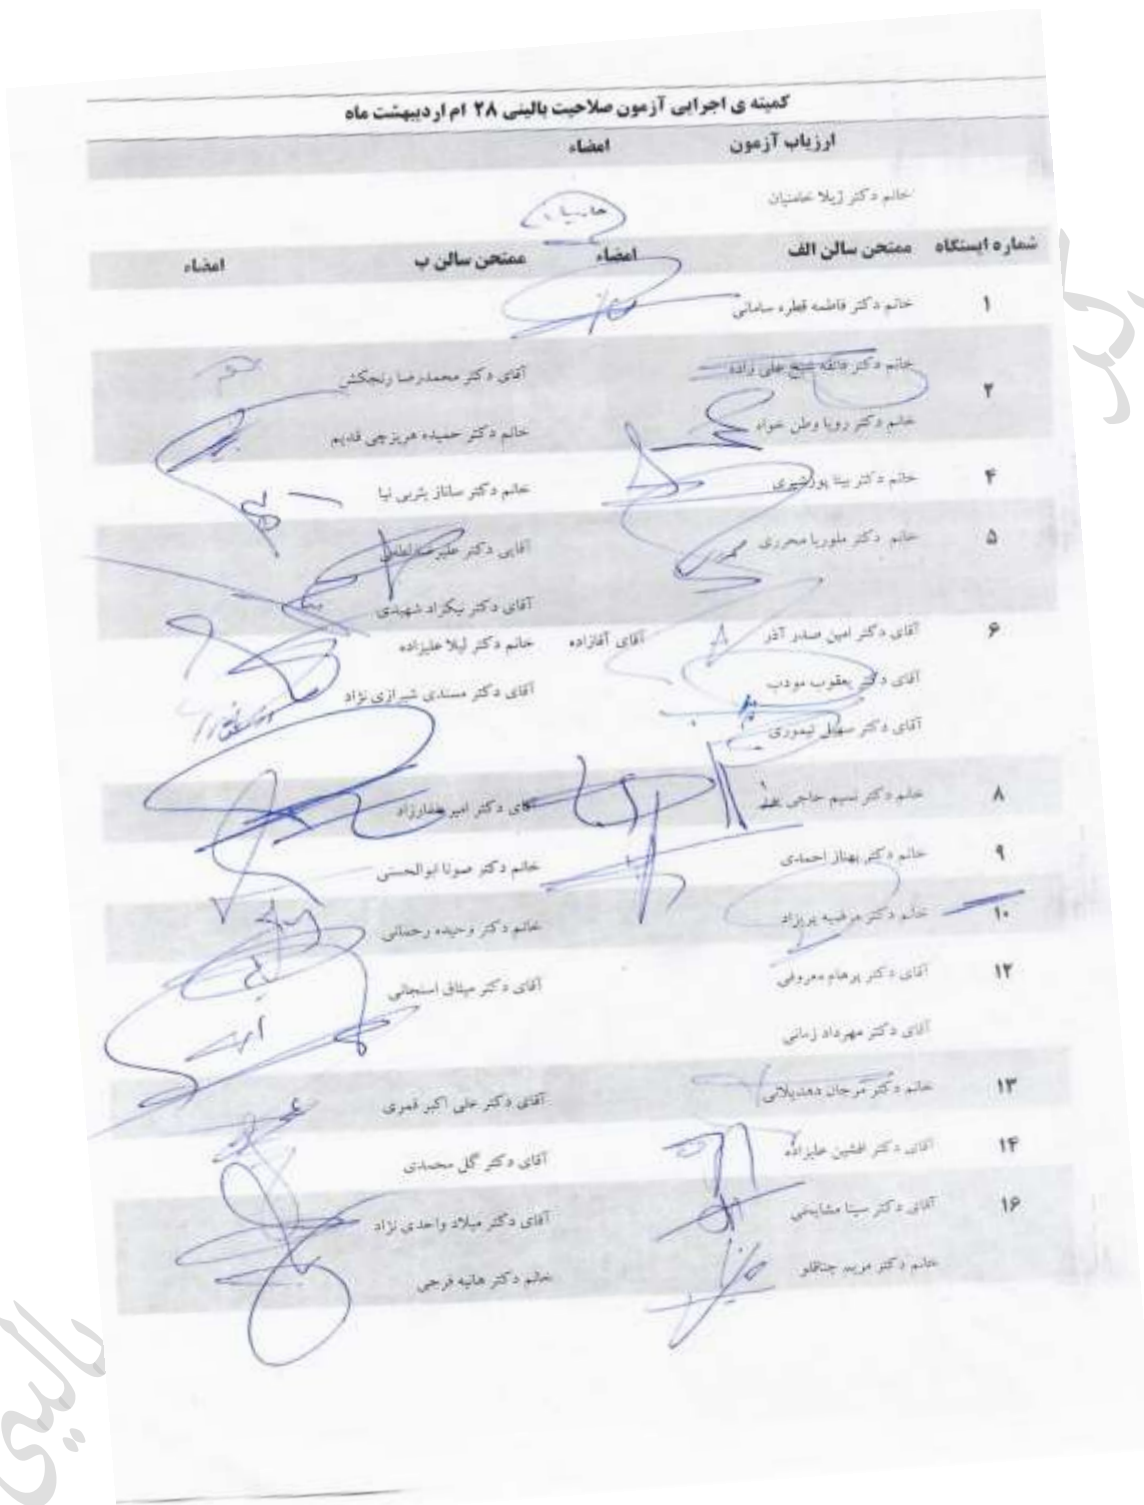 کمیته ی اجرایی آزمون صلاحیت بالینی ۲۸ ام اردیبهشت ماه
ارزیاب آزمون امضاء
خانم دکتر ژیلا خامنیان
شماره ایستگاه ممتحن سالن الف امضاء ممتحن سالن ب امضاء
۱ خانم دکتر فاطمه قطره سامانی
۲ خانم دکتر شیخ علی زاده آقای دکتر محمدرضا رنجکش
خانم دکتر رویا وطن خواه خانم دکتر حمیده هریزچی قدیم
۴ خانم دکتر بیتا پورشیری خانم دکتر ساناز یثربی نیا
۵ خانم دکتر ملوریا محرری آقایی دکتر علیرضا لطفی
آقای دکتر نیکزاد شهیدی
۶ آقای دکتر امین صدر آذر آقای آقازاده خانم دکتر لیلا علیزاده
آقای دکتر یعقوب مودب آقای دکتر مسندی شیرازی نژاد
آقای دکتر سهیل تیموری
۸ خانم دکتر نسیم حاجی آقای دکتر امیر غفارزاد
۹ خانم دکتر بهناز احمدی خانم دکتر صونا ابوالحسنی
۱۰ خانم دکتر مرضیه پریزاد خانم دکتر وحیده رحمانی
۱۲ آقای دکتر پرهام معروفی آقای دکتر میثاق اسنجانی
آقای دکتر مهرداد زمانی
۱۳ خانم دکتر مرجان دهدیلانی آقای دکتر علی اکبر قمری
۱۴ آقای دکتر افشین علیزاده آقای دکتر گل محمدی
۱۶ آقای دکتر سینا مشایخی آقای دکتر میلاد واحدی نژاد
خانم دکتر مریم چناقلو خانم دکتر هانیه فرجی